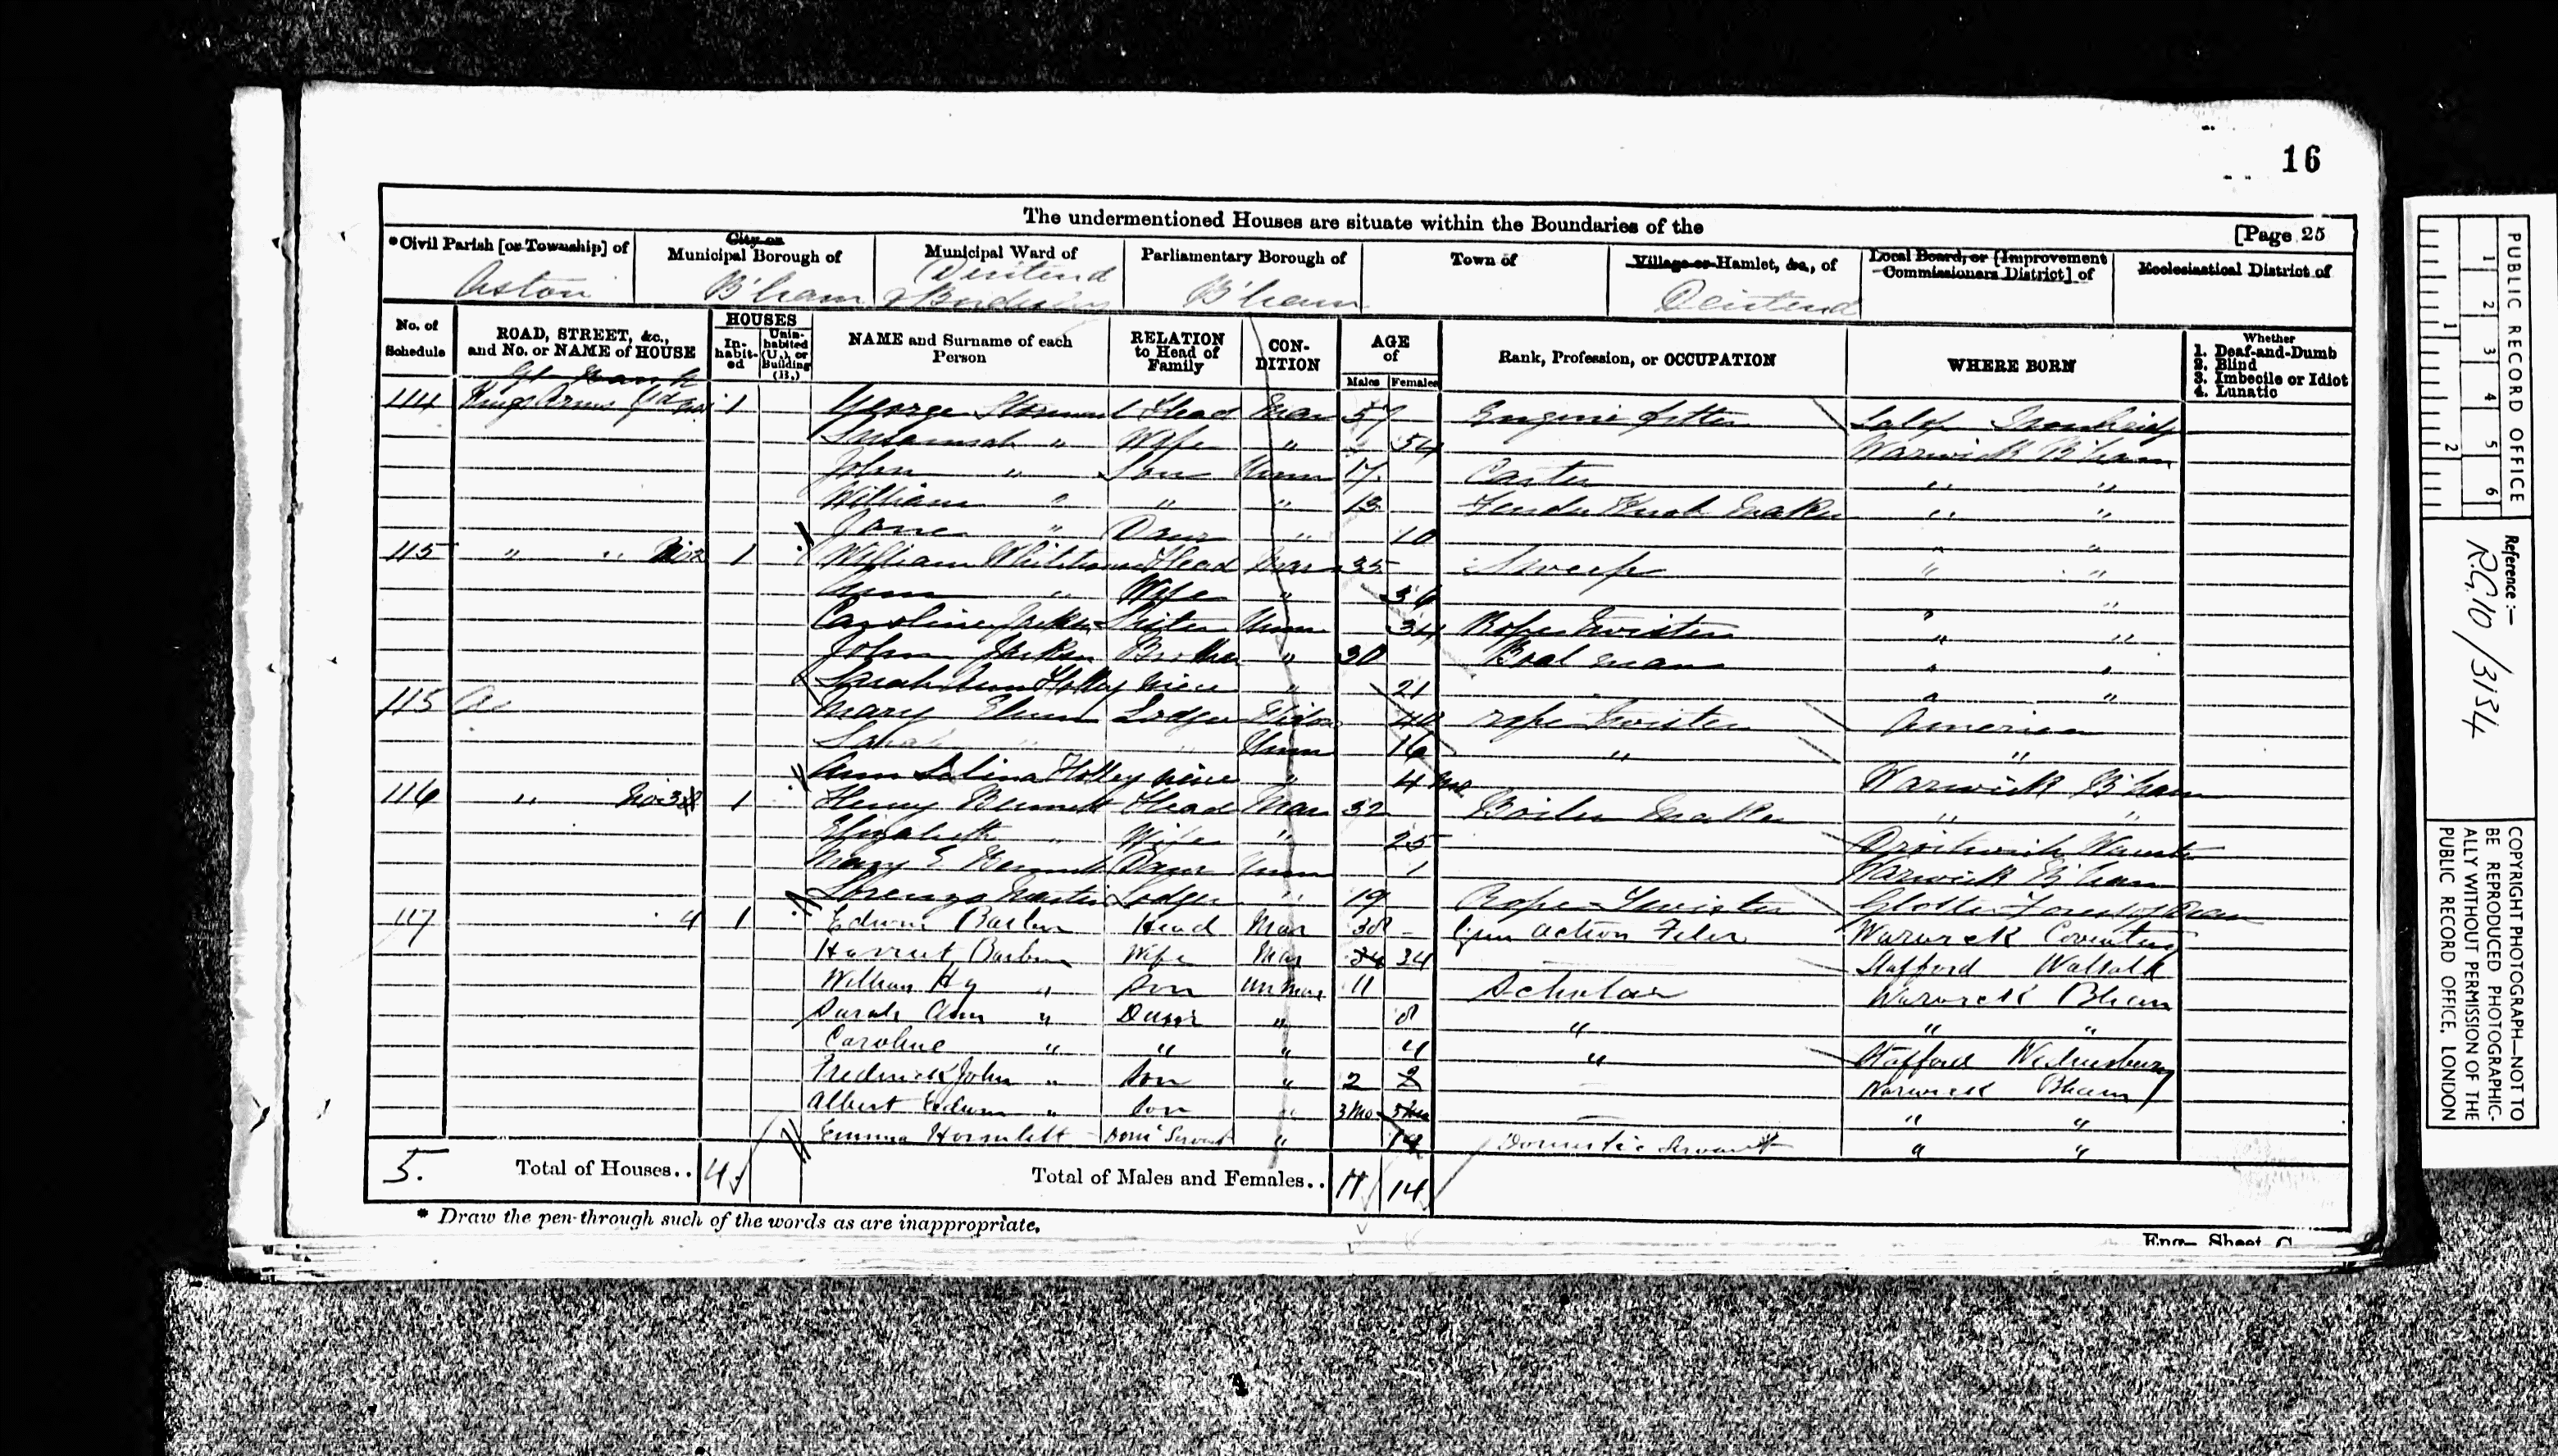 16
The undermentioned Houses are situate within the Boundaries of the
[Page 25
*Civil Parish [or Township] of
City or Municipal Borough of
Municipal Ward of
Parliamentary Borough of
Town of
Village or Hamlet, &c., of
Local Board, or [Improvement Commissioners District] of
Ecclesiastical District of
Aston B'ham Deritend & Bordesley B'ham Deritend
No. of Schedule
ROAD, STREET, &c., and No. or NAME of HOUSE
HOUSES
In-habit-ed
Unin-habited (U.), or Building (B.)
NAME and Surname of each Person
RELATION to Head of Family
CON-DITION
AGE of
Males Females
Rank, Profession, or OCCUPATION
WHERE BORN
Whether
1. Deaf-and-Dumb
2. Blind
3. Imbecile or Idiot
4. Lunatic
114 Kings Arms 1 George Head Mar 57 Engine fitter Salop
Susannah " Wife " 54 Warwick B'ham
John " Son Unm 17 Carter " "
William " " " 13 Maker " "
Jane " Daur " 10 " "
115 " " No 2 1 William Whitehouse Head Mar 35 Sweep " "
Ann " Wife " "
Caroline Sister Unm 34 Rope Twister " "
John Brother " 30 Boat man " "
Sarah Ann Holley niece " 21 " "
115 Mary Lodger Widow 40 rope Twister America
Sarah " " Unm 16 " "
Ann Selina Holley niece " 4 mo Warwick B'ham
116 " No 3 1 Henry Bennett Head Mar 32 Boiler Maker " "
Elizabeth " Wife " 25 Droitwich
Mary E Bennett Daur Unm 1 Warwick B'ham
Lorenzo Martin Lodger " 19 Rope Twister Forest of Dean
117 4 1 Edwin Barber Head Mar 38 - Gun Action Filer Warwick Coventry
Harriet Barber Wife Mar 24 34 Stafford Walsall
William Hy " Son Un Mar 11 Scholar Warwick Bham
Sarah Ann " Daur " 8 " " "
Caroline " " " 4 " Stafford Wednesbury
Frederick John " Son " 2 2 Warwick Bham
Albert Edwin " Son " 3 Mo " "
Emma " 14 Domestic Servant " "
5. Total of Houses.. 4 Total of Males and Females.. 11 14
* Draw the pen through such of the words as are inappropriate.
Eng— Sheet
PUBLIC RECORD OFFICE
1 2 3 4 5 6
1 2
Reference:—
R.G.10/3134
COPYRIGHT PHOTOGRAPH—NOT TO
BE REPRODUCED PHOTOGRAPHIC-
ALLY WITHOUT PERMISSION OF THE
PUBLIC RECORD OFFICE, LONDON